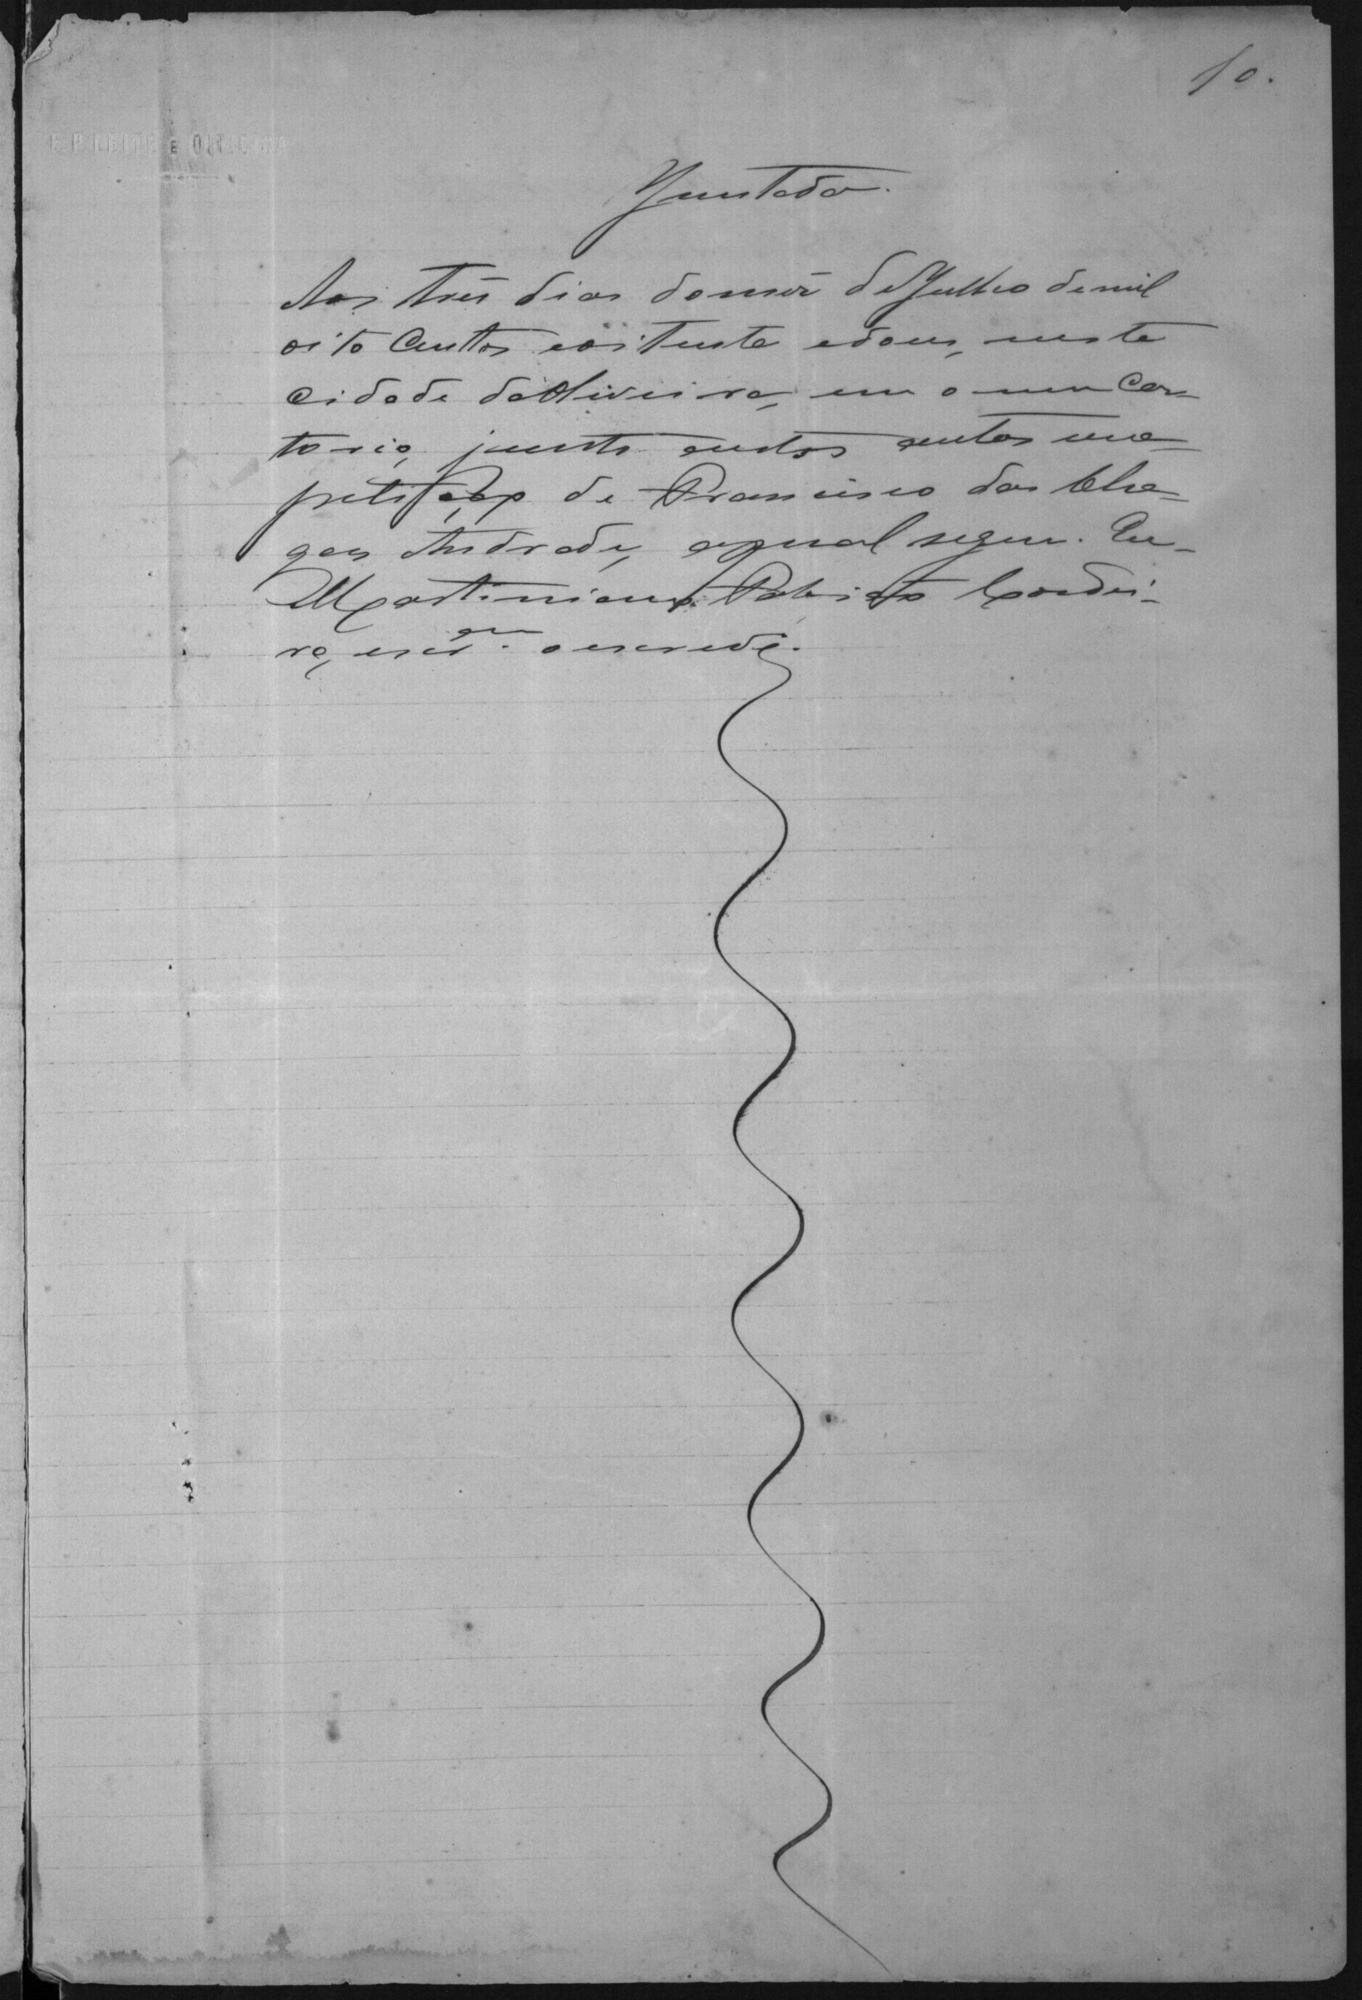 10.
Juntada.
Aos trẽs dias domẽz de Julho de mil
oito Centos eoitenta edous, nesta
Cidade da Oliveira, em o meu Car-
torio, junto aestes autos uma
petição de Francisco das Cha-
gas Andrade, aqual segue. Eu
Martiniano Cordei-
ro, escr.am o escrevi.